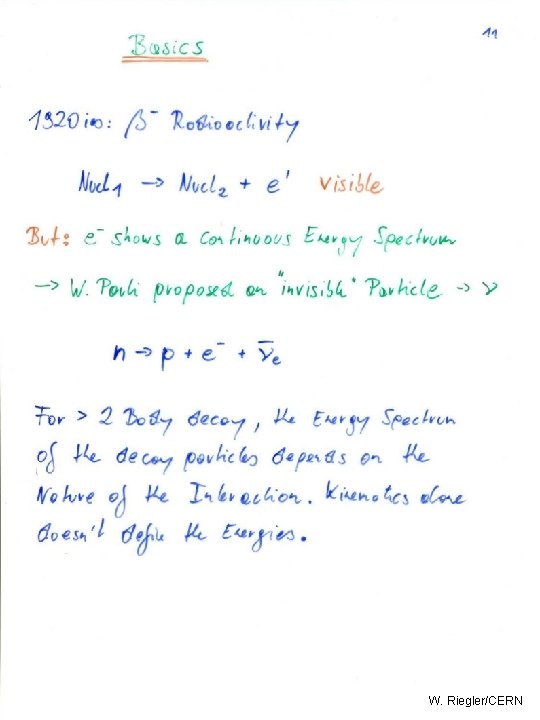 11
Basics
1920ies: β⁻ Radioactivity
Nucl₁ → Nucl₂ + e⁻ visible
But: e⁻ shows a continuous Energy Spectrum
→ W. Pauli proposed an "invisible" Particle → ν
n → p + e⁻ + ν̄ₑ
For > 2 Body decay, the Energy Spectrum
of the decay particles depends on the
Nature of the Interaction. Kinematics alone
doesn't define the Energies.
W. Riegler/CERN